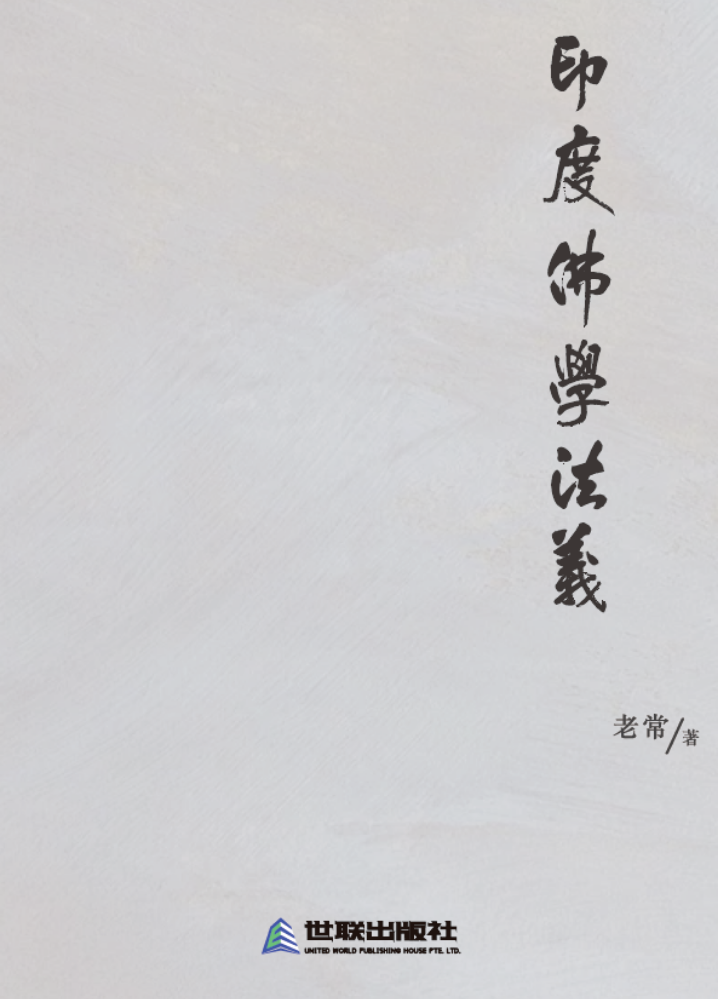 印度佛學法義
老常/著
世联出版社
UNITED WORLD PUBLISHING HOUSE PTE. LTD.